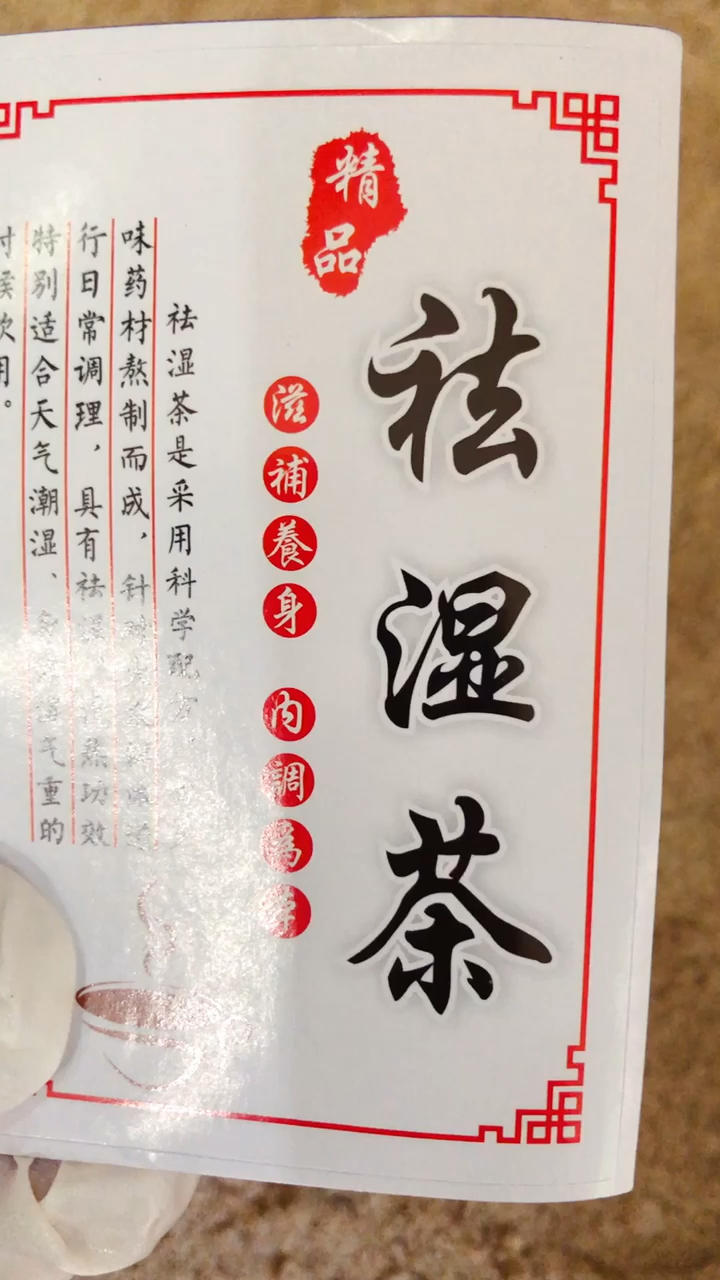 精品
祛湿茶
滋補養身 内調為
祛湿茶是采用科学配方
味药材熬制而成，针
行日常调理，具有祛 功效
特别适合天气潮湿、 气重的
饮用。